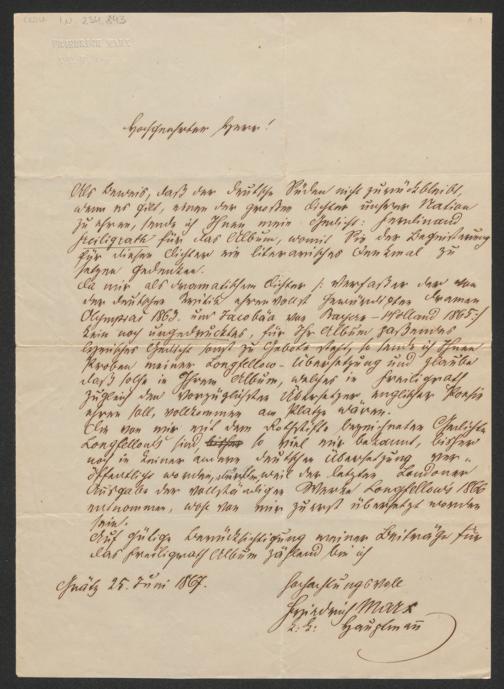 I.N. 234.843
FRIEDRICH MARX
Hochgeehrter Herr!
Als Beweis, daß der deutsche Süden nicht zurückbleibt,
wenn es gilt, einen der großen Dichter unserer Nation
zu ehren, sende ich Ihnen mein Gedicht: Ferdinand
Freiligrath für das Album, womit Sie der Begeisterung
für diesen Dichter ein literarisches Denkmal zu
setzen gedenken.
Da mir als dramatischem Dichter /: Verfasser der von
der deutschen Kritik ehrenvollst gewürdigten Dramen
Olympias 1863. und Jacobäa von Bayern-Holland 1865:/
kein noch ungedrucktes, für Ihr Album passendes
lyrisches Gedicht sonst zu Gebote steht, so sende ich Ihnen
Proben meiner Longfellow-Übersetzung und glaube
daß solche in Ihrem Album, welches in Freiligrath
zugleich den vorzüglichsten Übersetzer englischer Poesie
ehren soll, vollkommen am Platze wären.
Die von mir mit dem Rothstifte bezeichneten Gedichte
Longfellows sind so viel mir bekannt, bisher
noch in keiner andern deutschen Übersetzung ver-
öffentlicht worden, weil der letzten Londoner
Ausgabe der vollständigen Werke Longfellows 1866
entnommen, wohl von mir zuerst übersetzt worden
sein.
Auf gütige Berücksichtigung meiner Beiträge für
das Freiligrath Album zählend bin ich
Grätz 25. Juni 1867.
Hochachtungsvoll
Friedrich Marx
k. k. Hauptmann